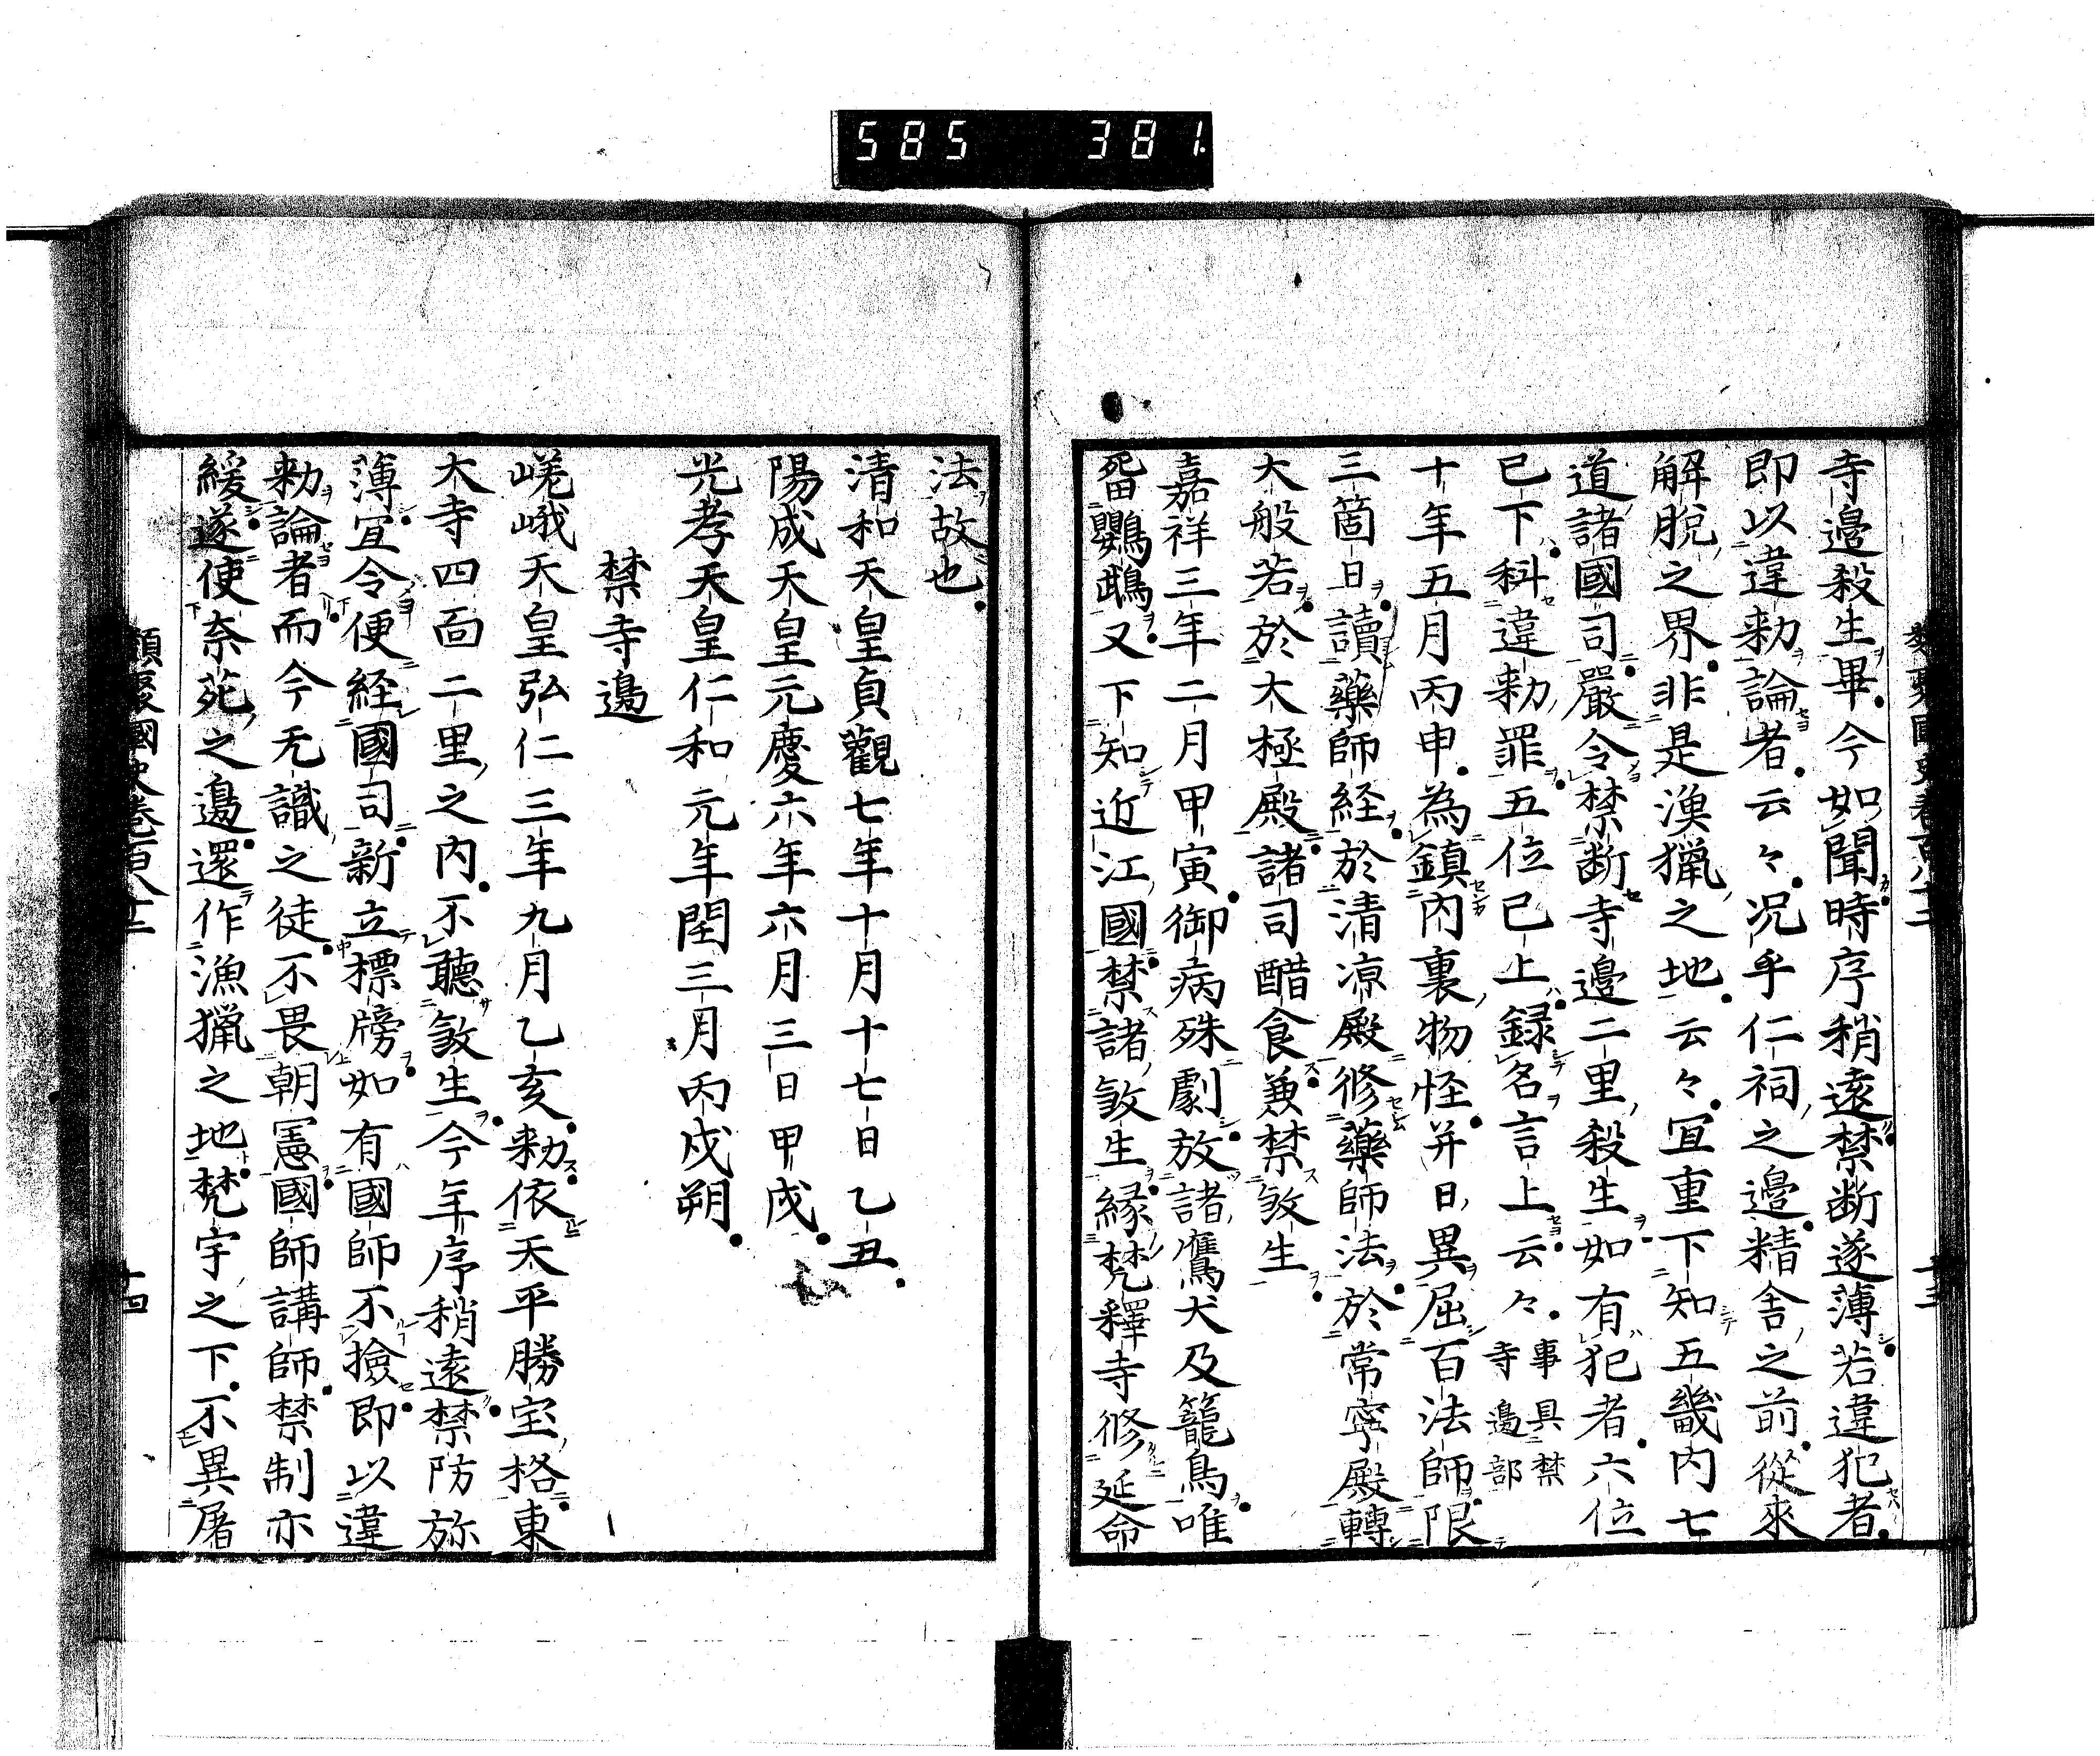 585 381
寺邊殺生畢今如聞時序稍遠禁断遂薄若違犯者
即以違勅論者云々况乎仁祠之邊精舎之前從來
解脱之界非是漁獵之地云々冝重下知五畿内七
道諸國司嚴令禁断寺邊二里殺生如有犯者六位
已下科違勅罪五位已上録名言上云々事具禁寺邊部
十年五月丙申為鎮内裏物怪并日異屈百法師限
三箇日讀藥師経於清凉殿修藥師法於常寧殿轉
大般若於大極殿諸司醋食兼禁敓生
嘉祥三年二月甲寅御病殊劇放諸鷹犬及籠鳥唯
畱鸚鵡又下知近江國禁諸敓生緣梵釋寺修延命
法故也
清和天皇貞觀七年十月十七日乙丑
陽成天皇元慶六年六月三日甲戌
光孝天皇仁和元年閏三月丙戌朔
禁寺邊
嵯峨天皇弘仁三年九月乙亥勅依天平勝宝格東
大寺四面二里之内不聽敓生今年序稍遠禁防弥
薄冝令便経國司新立標牓如有國師不撿即以違
勅論者而今无識之徒不畏朝憲國師講師禁制亦
緩遂使奈苑之邊還作漁獵之地梵宇之下不異屠
類聚國史卷百八十二
十四